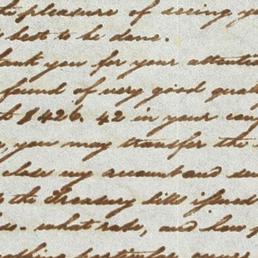 pleasure of seeing you
best to be done.
thank you for your attention
found of very good quali
$8426.42 in your
you may transfer the
close my account and
the Treasury bills issued
what rate, and how